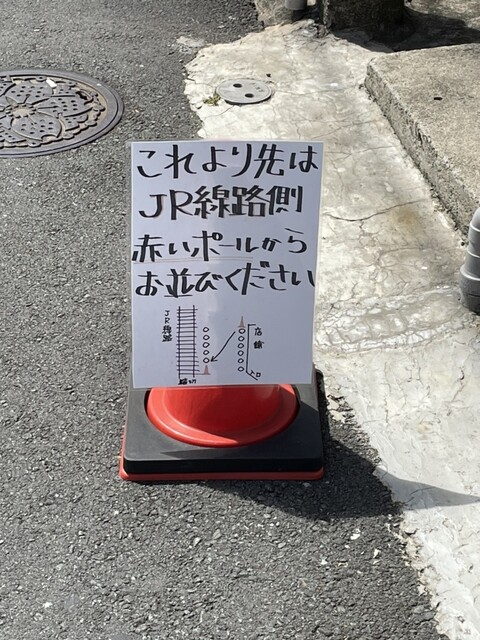 これより先は
JR線路側
赤いポールから
お並びください
JR線路
店舗
入口